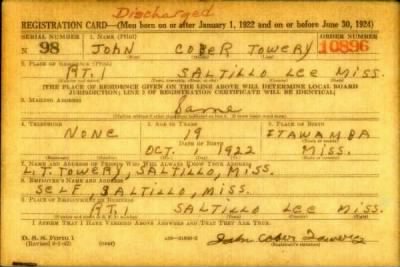 Discharged
REGISTRATION CARD—(Men born on or after January 1, 1922 and on or before June 30, 1924)
SERIAL NUMBER 1. NAME (Print) ORDER NUMBER
N 98 JOHN COBER TOWERY 10896
2. PLACE OF RESIDENCE (Print)
RT. 1 SALTILLO LEE MISS.
(THE PLACE OF RESIDENCE GIVEN ON THE LINE ABOVE WILL DETERMINE LOCAL BOARD
JURISDICTION; LINE 2 OF REGISTRATION CERTIFICATE WILL BE IDENTICAL)
3. MAILING ADDRESS
Same
4. TELEPHONE 5. AGE IN YEARS 6. PLACE OF BIRTH
NONE 19 ITAWAMBA
DATE OF BIRTH
OCT. 1 1922 MISS.
7. NAME AND ADDRESS OF PERSON WHO WILL ALWAYS KNOW YOUR ADDRESS
L.T. TOWERY, SALTILLO, MISS.
8. EMPLOYER'S NAME AND ADDRESS
SELF SALTILLO, MISS.
9. PLACE OF EMPLOYMENT OR BUSINESS
RT. 1 SALTILLO LEE MISS.
I AFFIRM THAT I HAVE VERIFIED ABOVE ANSWERS AND THAT THEY ARE TRUE.
D. S. S. Form 1
John Cober Towery